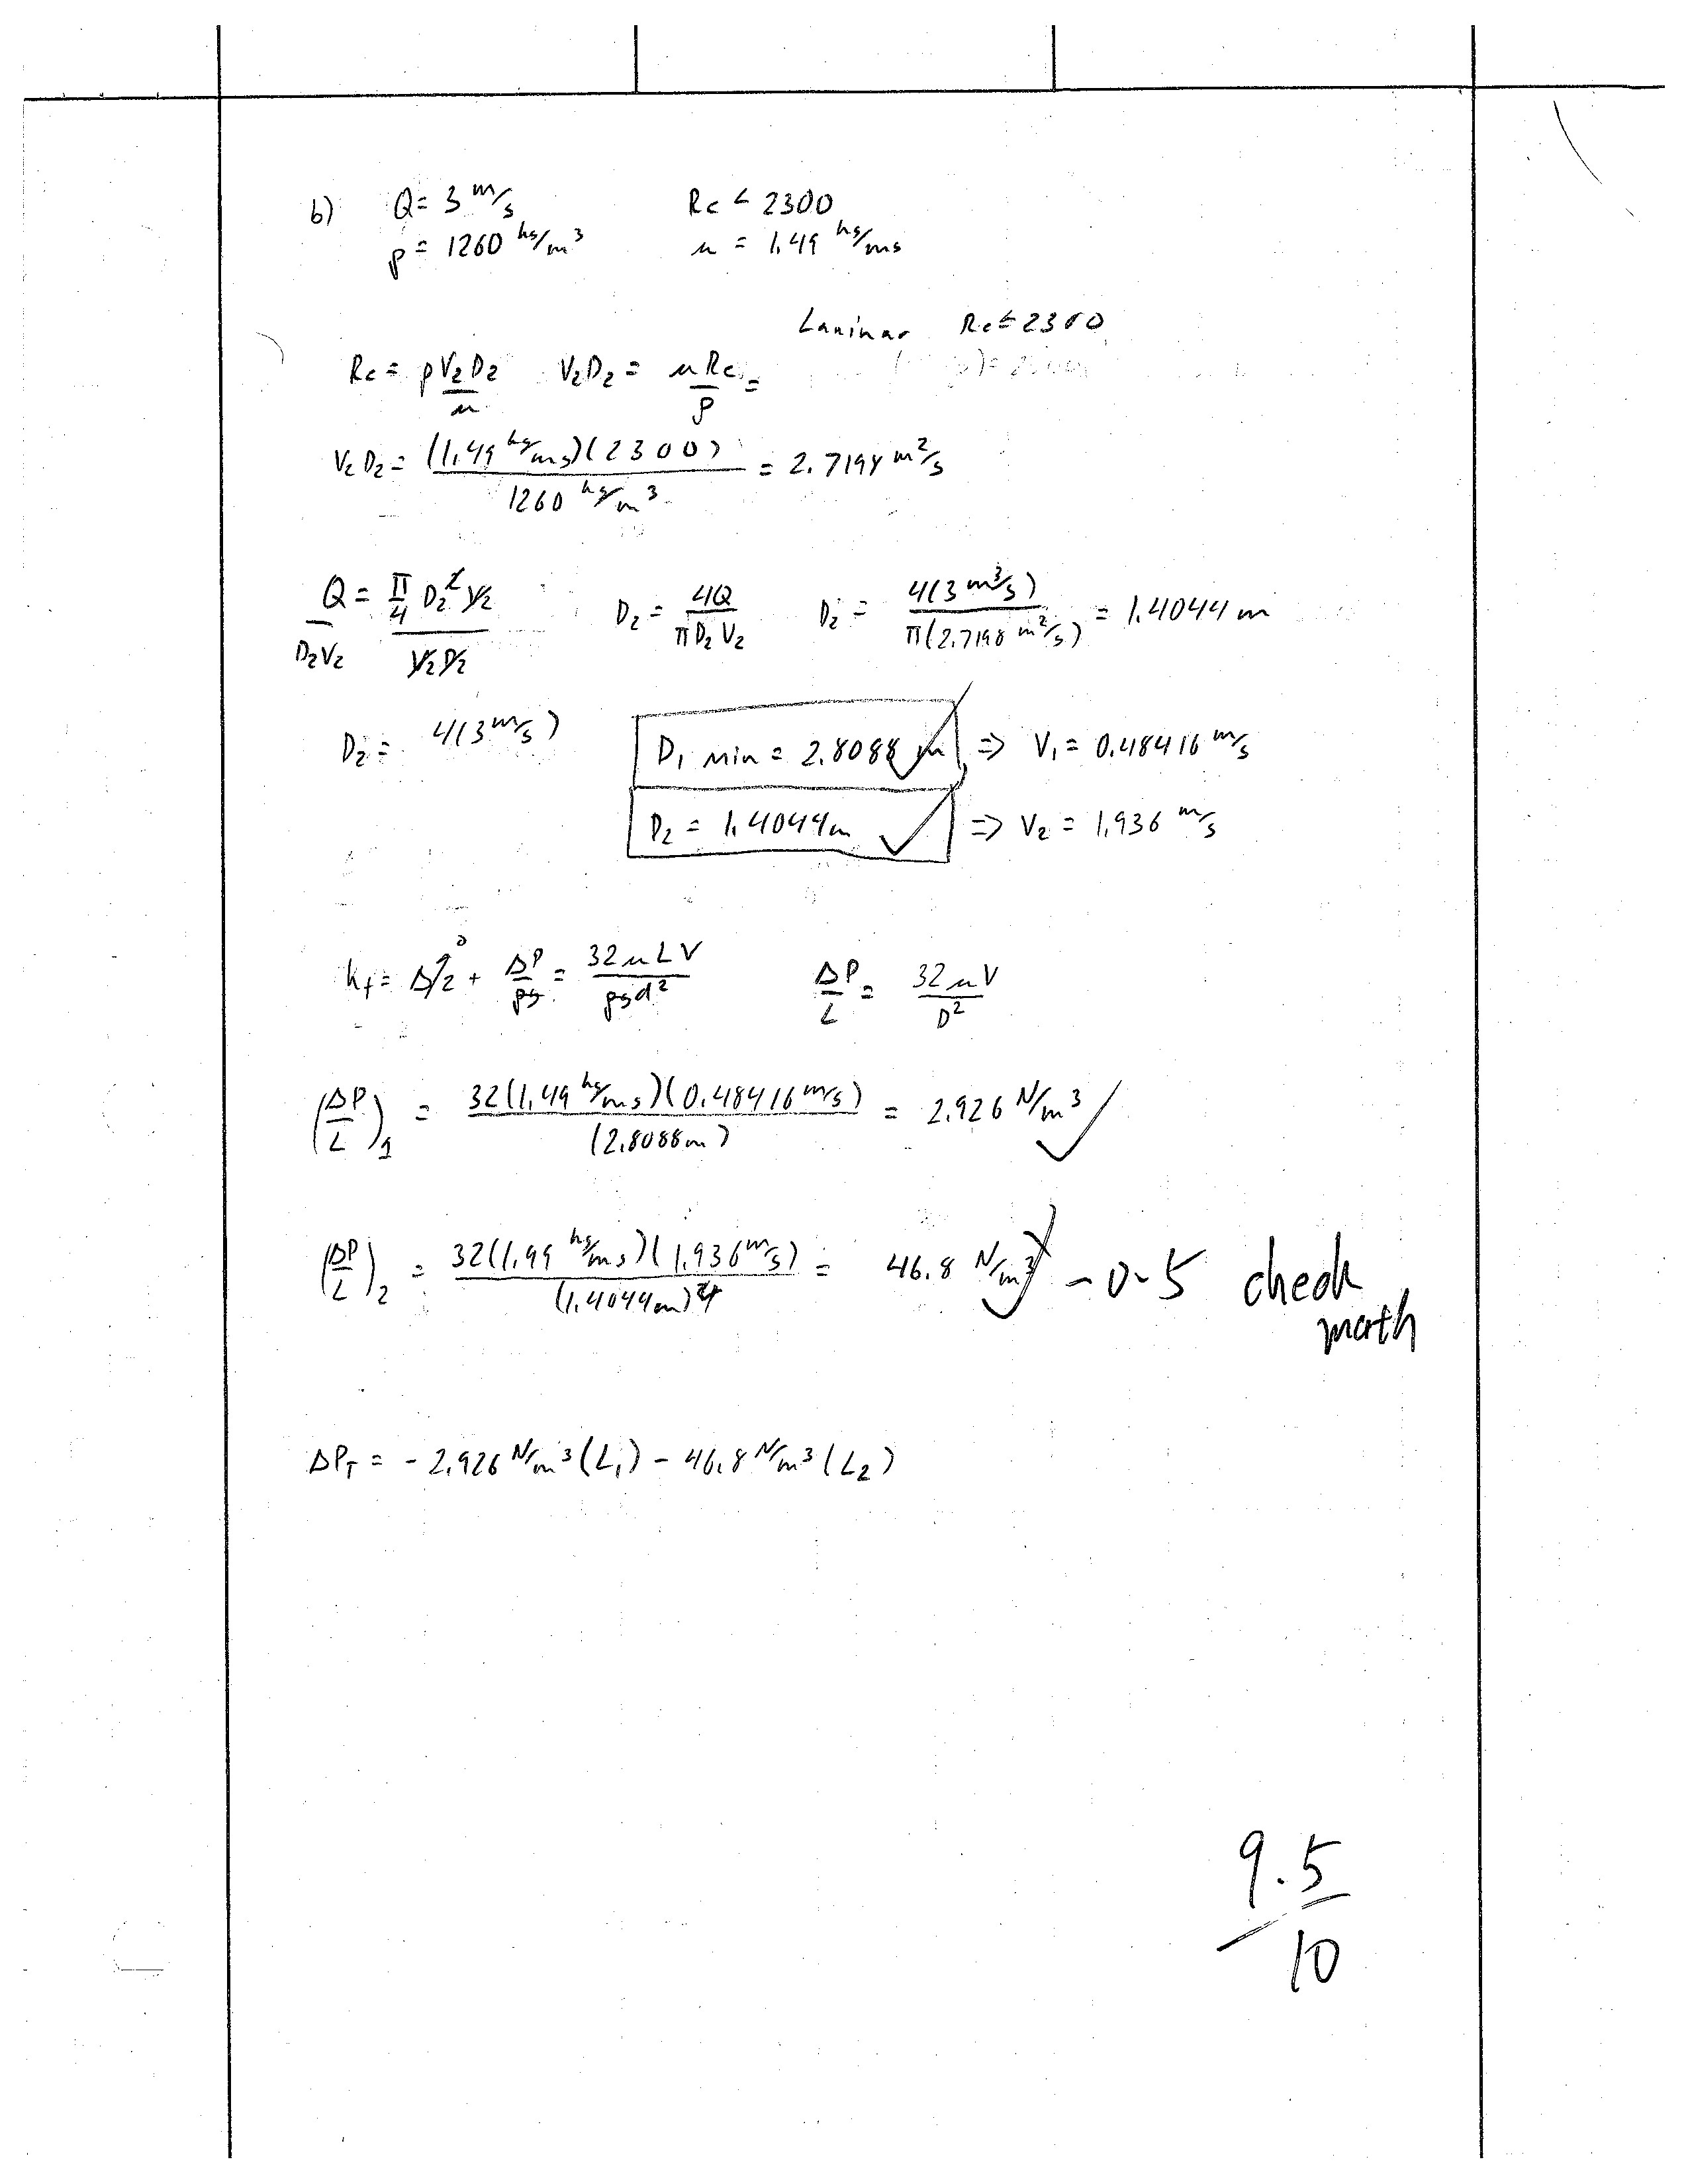 b) Q = 3 m/s Re < 2300
ρ = 1260 kg/m³ μ = 1.49 kg/ms
Laminar Re ≤ 2300
Re = ρV₂D₂/μ V₂D₂ = μRe/ρ =
V₂D₂ = (1.49 kg/ms)(2300)/1260 kg/m³ = 2.7198 m²/s
Q/D₂V₂ = π/4 D₂² V₂/V₂D₂ D₂ = 4Q/πD₂V₂ D₂ = 4(3 m³/s)/π(2.7198 m²/s) = 1.4044 m
D₂ = 4(3 m/s) D₁ min = 2.8088 m ⇒ V₁ = 0.48416 m/s
D₂ = 1.4044m ⇒ V₂ = 1.936 m/s
hf = Δz⁰ + ΔP/ρg = 32μLV/ρgd² ΔP/L = 32μV/D²
(ΔP/L)₁ = 32(1.49 kg/ms)(0.48416 m/s)/(2.8088m) = 2.926 N/m³
(ΔP/L)₂ = 32(1.99 kg/ms)(1.936 m/s)/(1.4044m)² = 46.8 N/m³ -0.5 check
math
ΔP_T = -2.926 N/m³ (L₁) - 46.8 N/m³ (L₂)
9.5
10